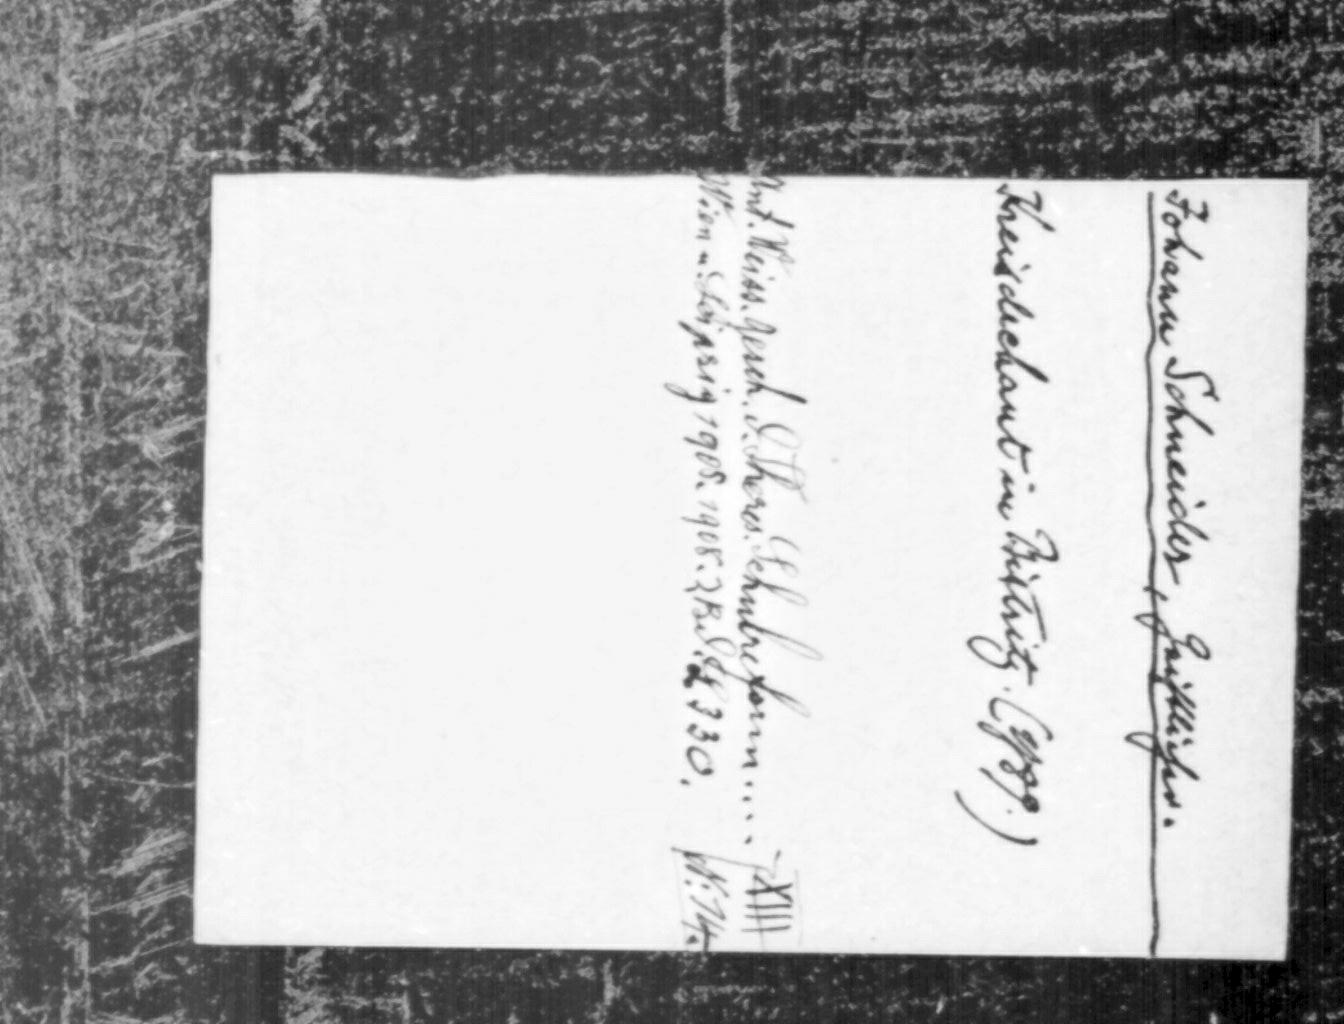 Johann Schneider, Geistlicher.
Kreisdechant in Bistritz. (1779.)
Ant. Weiss. Gesch. d. Theres. Schulreform....
Wien u. Leipzig 1905. 1908. 2 Bd. 330.
XIII
N: 74.